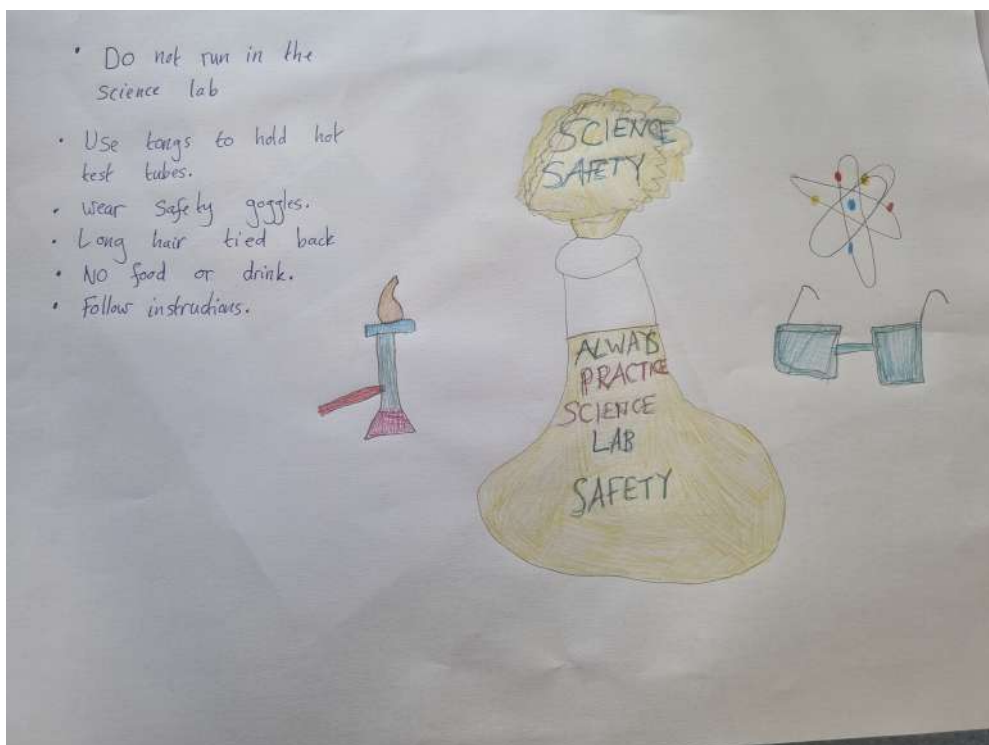 • Do not run in the
science lab
• Use tongs to hold hot
test tubes.
• Wear Safety goggles.
• Long hair tied back
• No food or drink.
• Follow instructions.
SCIENCE
SAFETY
ALWAYS
PRACTICE
SCIENCE
LAB
SAFETY